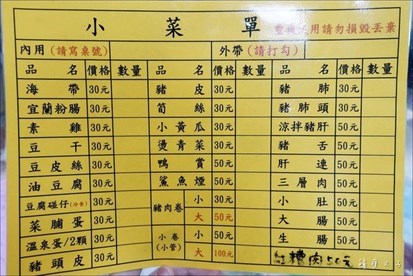 小菜單
重複使用請勿損毀丟棄
內用(請寫桌號) 外帶(請打勾)
品名 價格 數量 品名 價格 數量 品名 價格 數量
海帶 30元 豬皮 30元 豬肺 30元
宜蘭粉腸 30元 筍絲 30元 豬肺頭 30元
素雞 30元 小黃瓜 30元 涼拌豬肝 50元
豆干 30元 燙青菜 30元 豬舌 50元
豆皮絲 30元 鴨賞 50元 肝連 50元
油豆腐 30元 鯊魚煙 50元 三層肉 50元
豆腐碰仔(冷食) 30元 豬肉卷 小 30元 小肚 50元
菜脯蛋 30元 大 50元 大腸 50元
溫泉蛋/2顆 30元 小卷(小管) 小 50元 生腸 50元
豬頭皮 30元 大 100元 紅糟肉50元